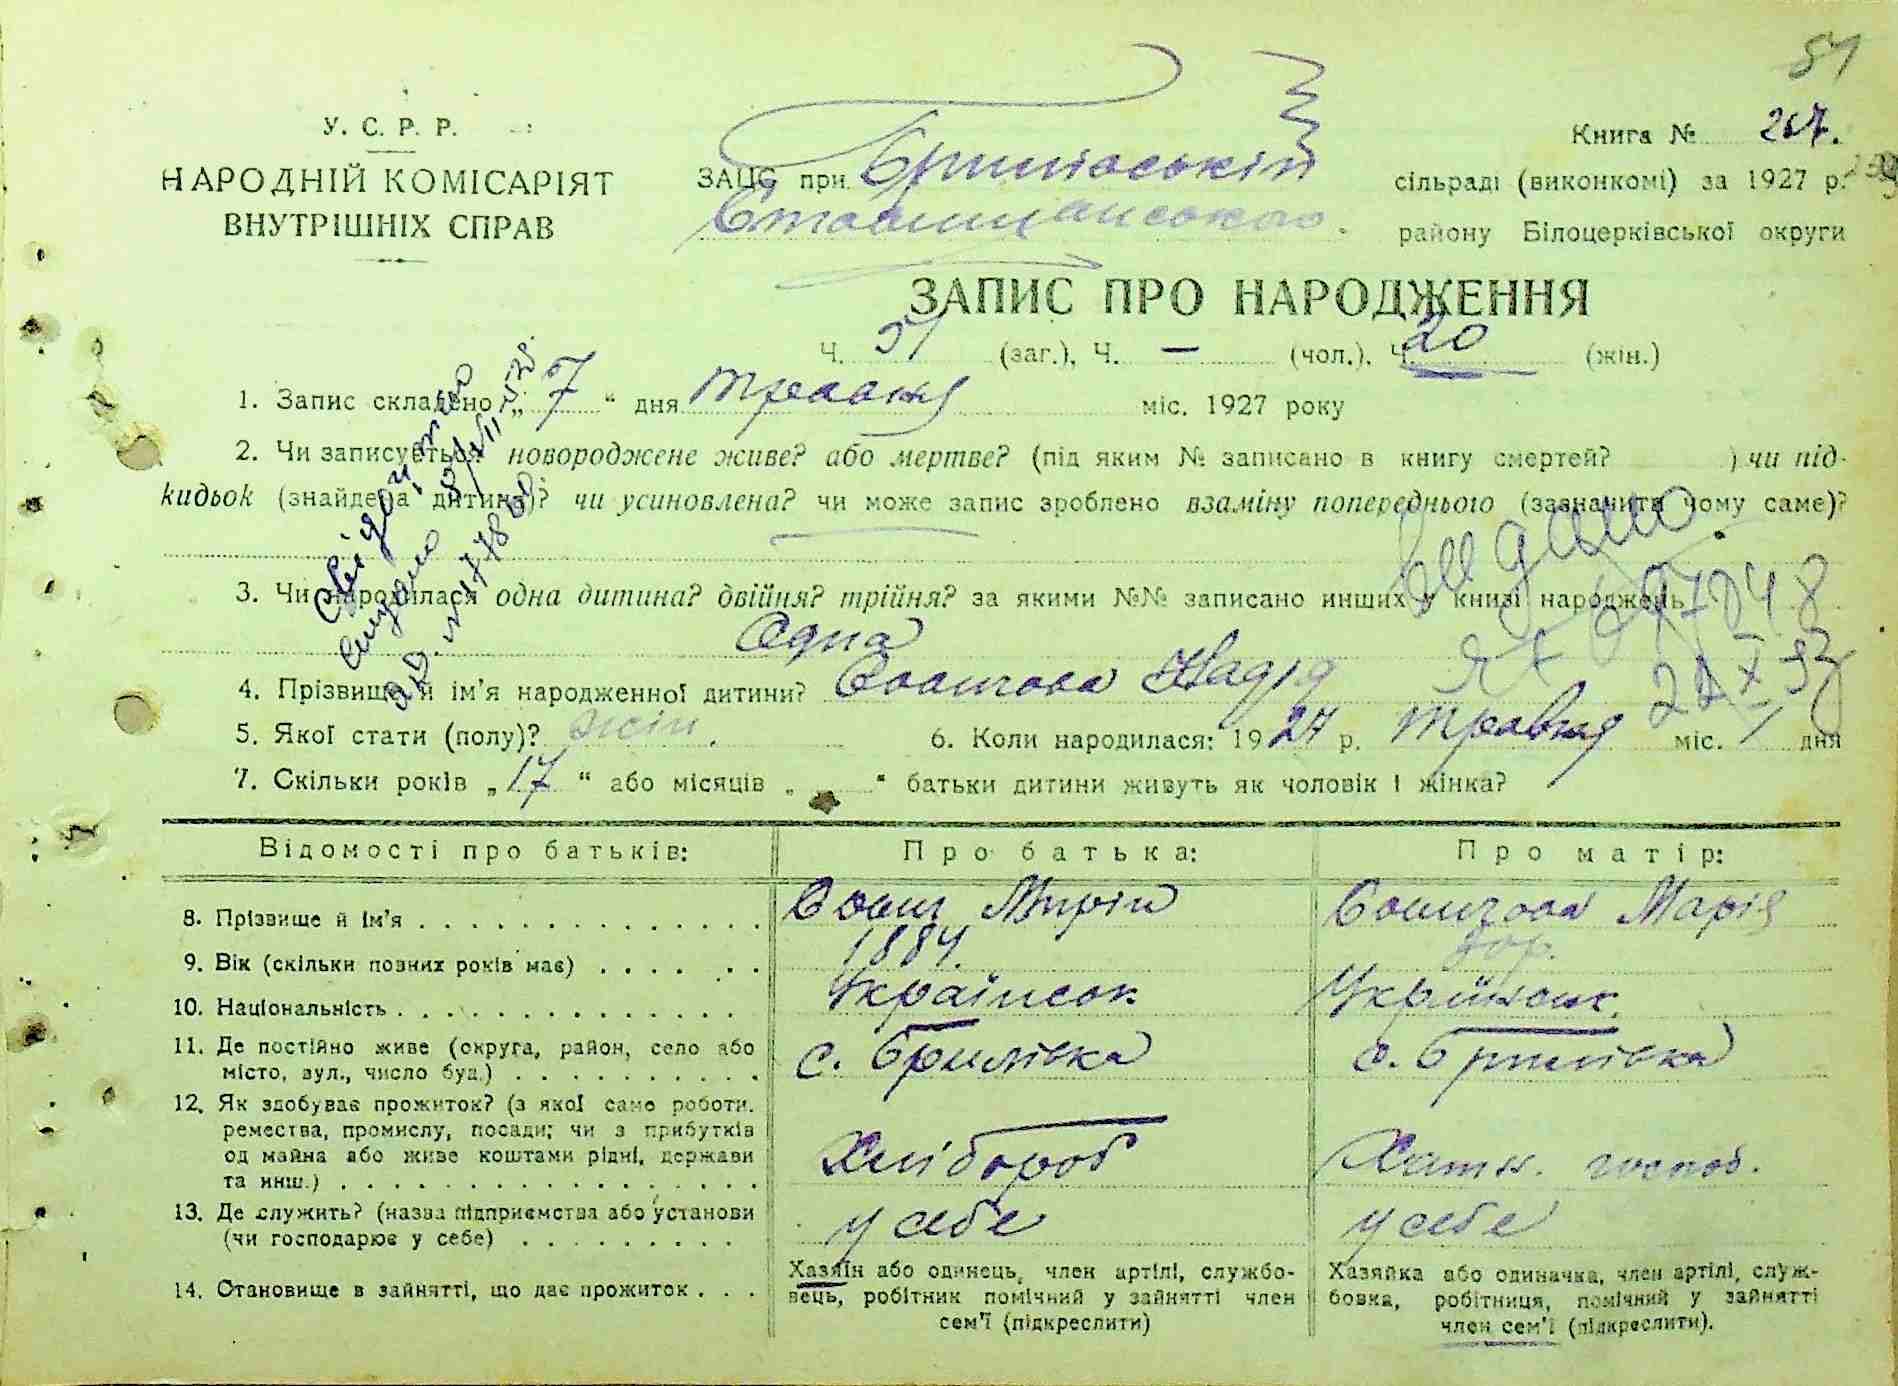 51
У. С. Р. Р.
НАРОДНІЙ КОМІСАРІЯТ
ВНУТРІШНІХ СПРАВ
Книга №
ЗАЦС при Брилівській сільраді (виконкомі) за 1927 р.
Ставищанського району Білоцерківської округи
ЗАПИС ПРО НАРОДЖЕННЯ
Ч. 51 (заг.), Ч. — (чол.), Ч. 20 (жін.)
1. Запис складено „ 7 “ дня травня міс. 1927 року
2. Чи записується новороджене живе? або мертве? (під яким № записано в книгу смертей? ) чи під-
кидьок (знайдена дитина)? чи усиновлена? чи може запис зроблено взаміну попереднього (зазначити чому саме)?
Видано
3. Чи народилася одна дитина? двійня? трійня? за якими №№ записано инших у книзі народжень
Одна
4. Прізвище й ім'я народженної дитини? Надія
5. Якої стати (полу)? жін. 6. Коли народилася: 1927 р. травня міс. 1 дня
7. Скільки років „ 17 “ або місяців „ “ батьки дитини живуть як чоловік і жінка?
Відомості про батьків: Про батька: Про матір:
8. Прізвище й ім'я Марія
9. Вік (скільки повних років має) 1884.
10. Національність Українськ Українськ.
11. Де постійно живе (округа, район, село або
місто, вул., число буд.) с. Брилівка с. Брилівка
12. Як здобуває прожиток? (з якої саме роботи,
ремества, промислу, посади; чи з прибутків
од майна або живе коштами рідні, держави
та инш.) Хлібороб Хатн. господ.
13. Де служить? (назва підприємства або установи
(чи господарює у себе) у себе у себе
14. Становище в зайнятті, що дає прожиток
Хазяїн або одинець, член артілі, службо-
вець, робітник помічний у зайнятті член
сем'ї (підкреслити)
Хазяйка або одиначка, член артілі, служ-
бовка, робітниця, помічний у зайнятті
член сем'ї (підкреслити).